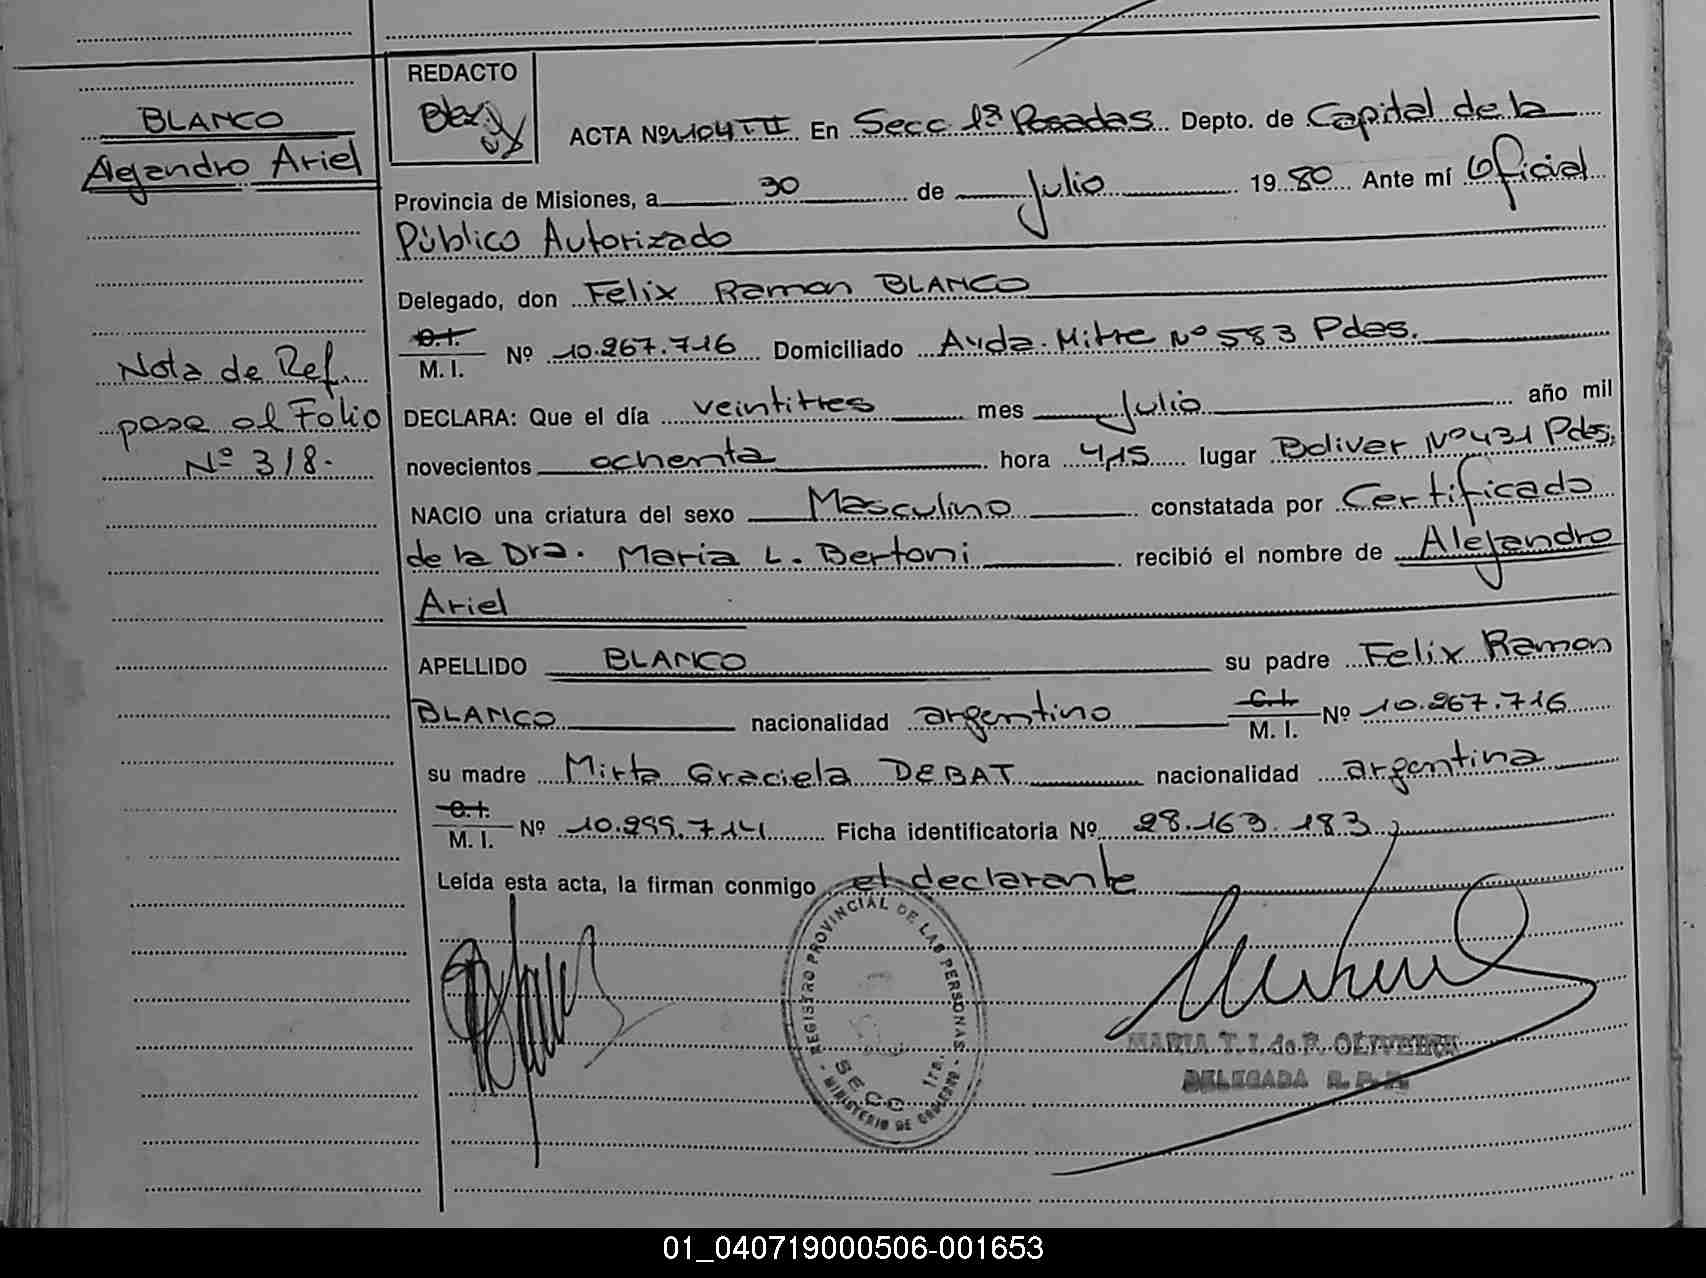 BLANCO
Alejandro Ariel
Nota de Ref.
pasa al Folio
Nº 318.
REDACTO
ACTA Nº 1104 TII En Secc 1ª Posadas Depto. de Capital de la
Provincia de Misiones, a 30 de Julio 1980 Ante mí Oficial
Público Autorizado
Delegado, don Felix Ramon BLANCO
C.I.
M. I. Nº 10.267.716 Domiciliado Avda. Mitre Nº 583 Pdas.
DECLARA: Que el día veintitres mes Julio año mil
novecientos ochenta hora 4,15 lugar Bolivar Nº 431 Pdas.
NACIO una criatura del sexo Masculino constatada por Certificado
de la Dra. Maria L. Bertoni recibió el nombre de Alejandro
Ariel
APELLIDO BLANCO su padre Felix Ramon
BLANCO nacionalidad argentino C.I. M. I. Nº 10.267.716
su madre Mirta Graciela DEBAT nacionalidad argentina
C.I.
M. I. Nº 10.999.714 Ficha identificatoria Nº 28.163.183
Leída esta acta, la firman conmigo el declarante
REGISTRO PROVINCIAL DE LAS PERSONAS
SECC 1ra.
MINISTERIO DE GOBIERNO
MARIA T. I. de F. OLIVEIRA
DELEGADA R. P. P.
01_040719000506-001653